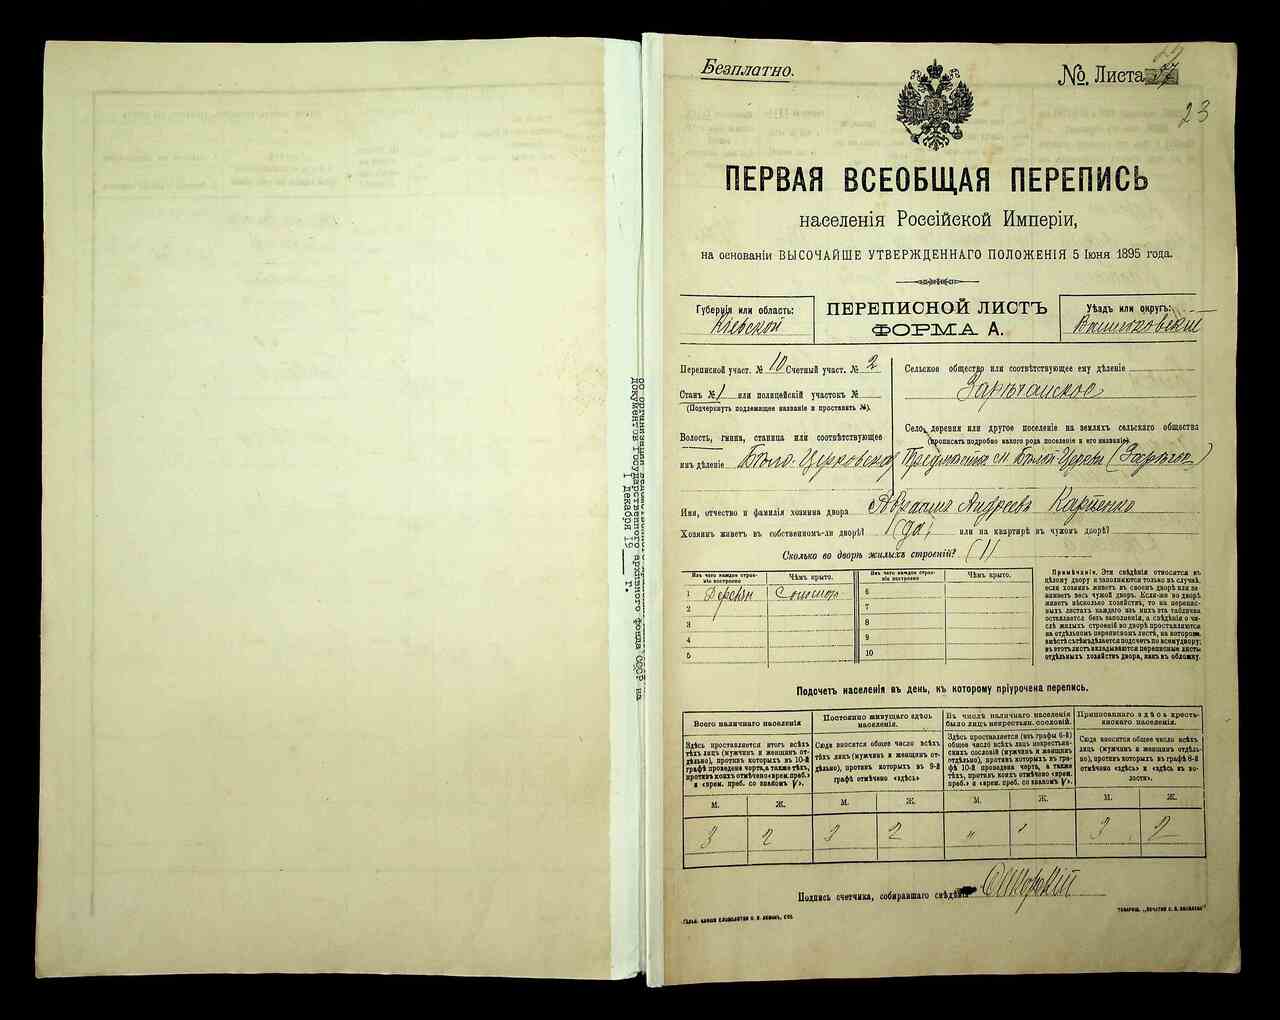 Безплатно.
№. Листа
23
ПЕРВАЯ ВСЕОБЩАЯ ПЕРЕПИСЬ
населенія Россійской Имперіи,
на основаніи ВЫСОЧАЙШЕ УТВЕРЖДЕННАГО ПОЛОЖЕНІЯ 5 Іюня 1895 года.
Губернія или область:
Кіевской
ПЕРЕПИСНОЙ ЛИСТЪ
ФОРМА А.
Уѣздъ или округъ:
Васильковскій
Переписной участ. № 10 Счетный участ. № 2
Станъ № 1 или полицейскій участокъ №
(Подчеркнуть подлежащее названіе и проставить №).
Волость, гмина, станица или соотвѣтствующее
имъ дѣленіе Бѣло-Церковская
Сельское общество или соотвѣтствующее ему дѣленіе
Зарѣчанское
Село, деревня или другое поселеніе на земляхъ сельскаго общества
(прописать подробно какого рода поселеніе и его названіе)
Предмѣстье м. Бѣлой-Церкви
Имя, отчество и фамилія хозяина двора Авраамъ Андреевъ Карпенко
Хозяинъ живетъ въ собственномъ-ли дворѣ? (да) или на квартирѣ въ чужомъ дворѣ?
Сколько во дворѣ жилыхъ строеній? (1)
Изъ чего каждое строеніе построено
Чѣмъ крыто.
Изъ чего каждое строеніе построено
Чѣмъ крыто.
1 Деревян Соломой
2
3
4
5
6
7
8
9
10
Примѣчаніе. Эти свѣдѣнія относятся къ
цѣлому двору и заполняются только въ случаѣ,
если хозяинъ живетъ въ своемъ дворѣ или занимаетъ
весь чужой дворъ. Если-же во дворѣ
живетъ нѣсколько хозяйствъ, то на переписныхъ
листахъ каждаго изъ нихъ эта табличка
оставляется безъ заполненія, а свѣдѣнія о числѣ
жилыхъ строеній во дворѣ проставляются
на отдѣльномъ переписномъ листѣ, на которомъ
вмѣстѣ съ тѣмъ дѣлается подсчетъ по всему двору;
въ этотъ листъ вкладываются переписные листы
отдѣльныхъ хозяйствъ двора, какъ въ обложку.
Подсчетъ населенія въ день, къ которому пріурочена перепись.
Всего наличнаго населенія
Постоянно живущаго здѣсь населенія.
Въ числѣ наличнаго населенія было лицъ некрестьян. сословій.
Приписаннаго здѣсь крестьянскаго населенія.
Здѣсь проставляется итогъ всѣхъ
тѣхъ лицъ (мужчинъ и женщинъ отдѣльно),
противъ которыхъ въ 10-й
графѣ проведена черта, а также тѣхъ,
противъ коихъ отмѣчено «врем. преб.»
и «врем. преб. со знакомъ V».
Сюда вносится общее число всѣхъ
тѣхъ лицъ (мужчинъ и женщинъ отдѣльно),
противъ которыхъ въ 9-й
графѣ отмѣчено «здѣсь»
Здѣсь проставляется (изъ графы 6-й)
общее число всѣхъ лицъ некрестьянскихъ
сословій (мужчинъ и женщинъ
отдѣльно), противъ которыхъ въ графѣ
10-й проведена черта, а также
тѣхъ, противъ коихъ отмѣчено «врем.
преб.» и «врем. преб. со знакомъ V».
Сюда вносится общее число всѣхъ
лицъ (мужчинъ и женщинъ отдѣльно),
противъ которыхъ въ графѣ 8-й
отмѣчено «здѣсь» и «здѣсь въ волости».
М. Ж. М. Ж. М. Ж. М. Ж.
3 2 3 2 „ 3 2
Подпись счетчика, собиравшаго свѣдѣнія
документов Государственного архивного фонда СССР на
1 декабря 19___ г.